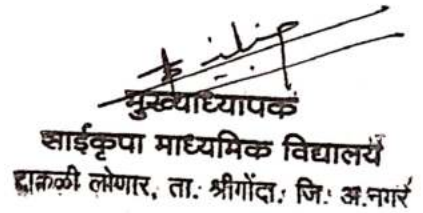 मुख्याध्यापक
साईकृपा माध्यमिक विद्यालय
ढाकळी लोणार, ता. श्रीगोंदा, जि. अ.नगर